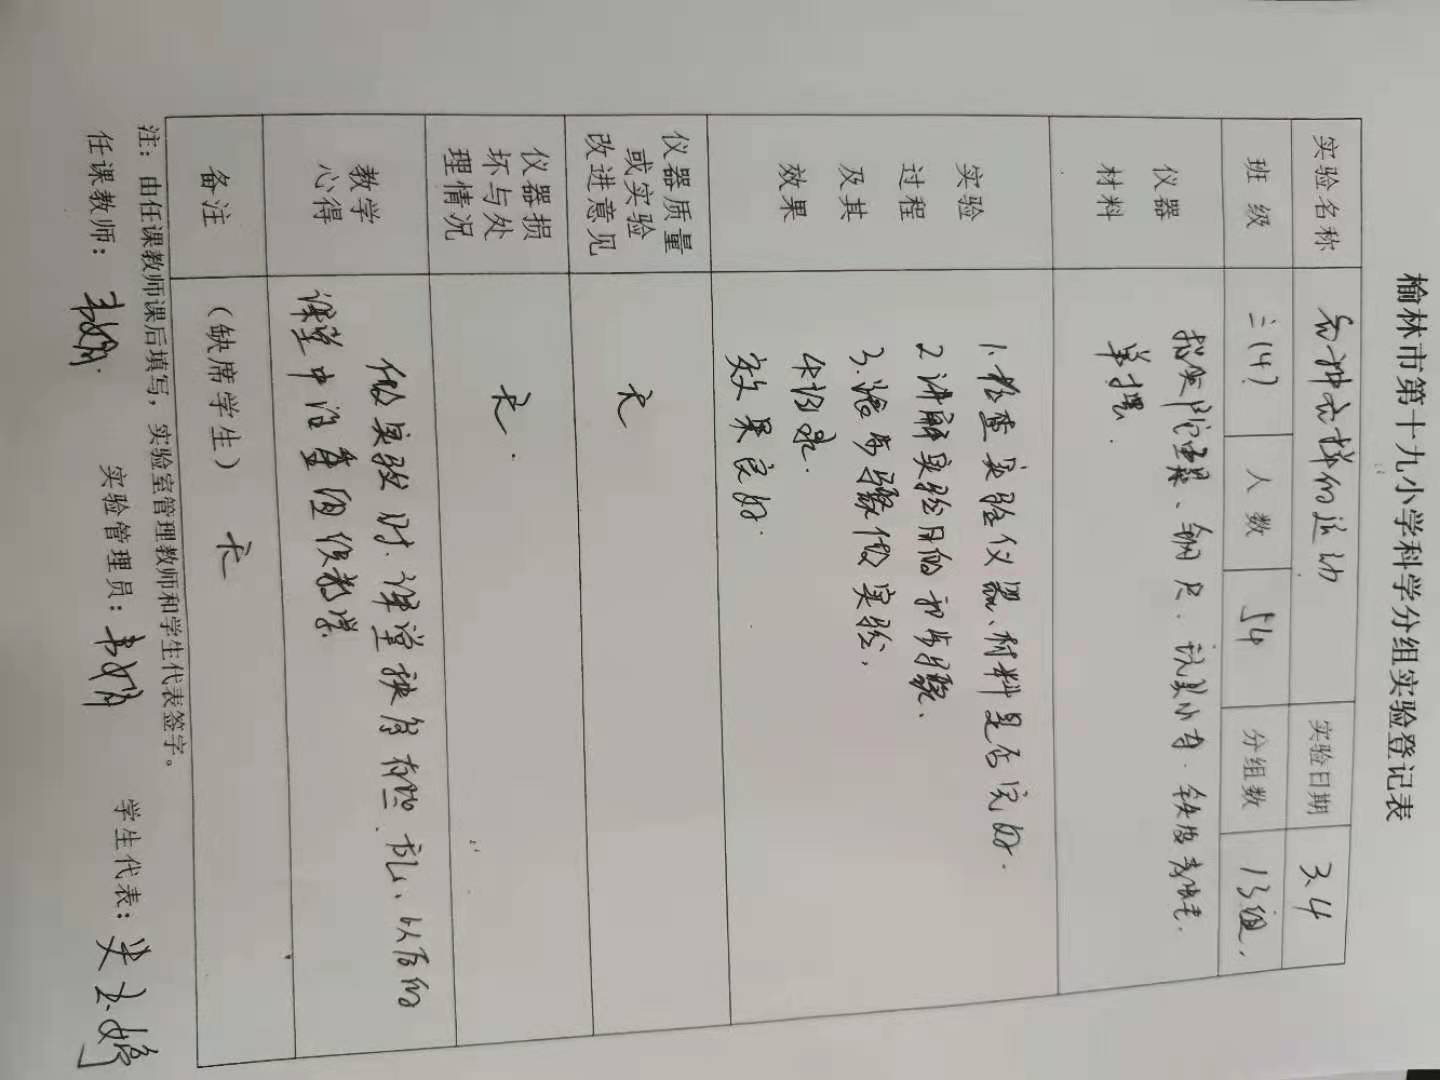 榆林市第十九小学科学分组实验登记表
实验名称 各种各样的运动 实验日期 3.4
班级 三(4) 人数 54 分组数 13组.
仪器
材料
指尖陀螺、钢尺.玩具小车.
单摆.
实验
过程
及其
效果
1.检查实验仪器、材料是否完好.
2讲解实验目的和步骤、
3.按步骤做实验,
4记录.
效果良好.
仪器质量
或实验
改进意见
无
仪器损
坏与处
理情况
无.
教学
心得
做实验时.课堂秩序有些乱、以后的
课堂中注重组织教学
备注
(缺席学生) 无
注:由任课教师课后填写,实验室管理教师和学生代表签字。
任课教师: 实验管理员: 学生代表: